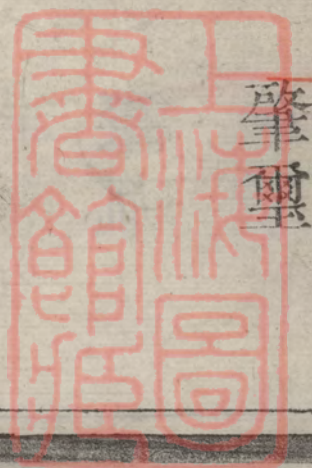 肇璽
上海圖
書館藏